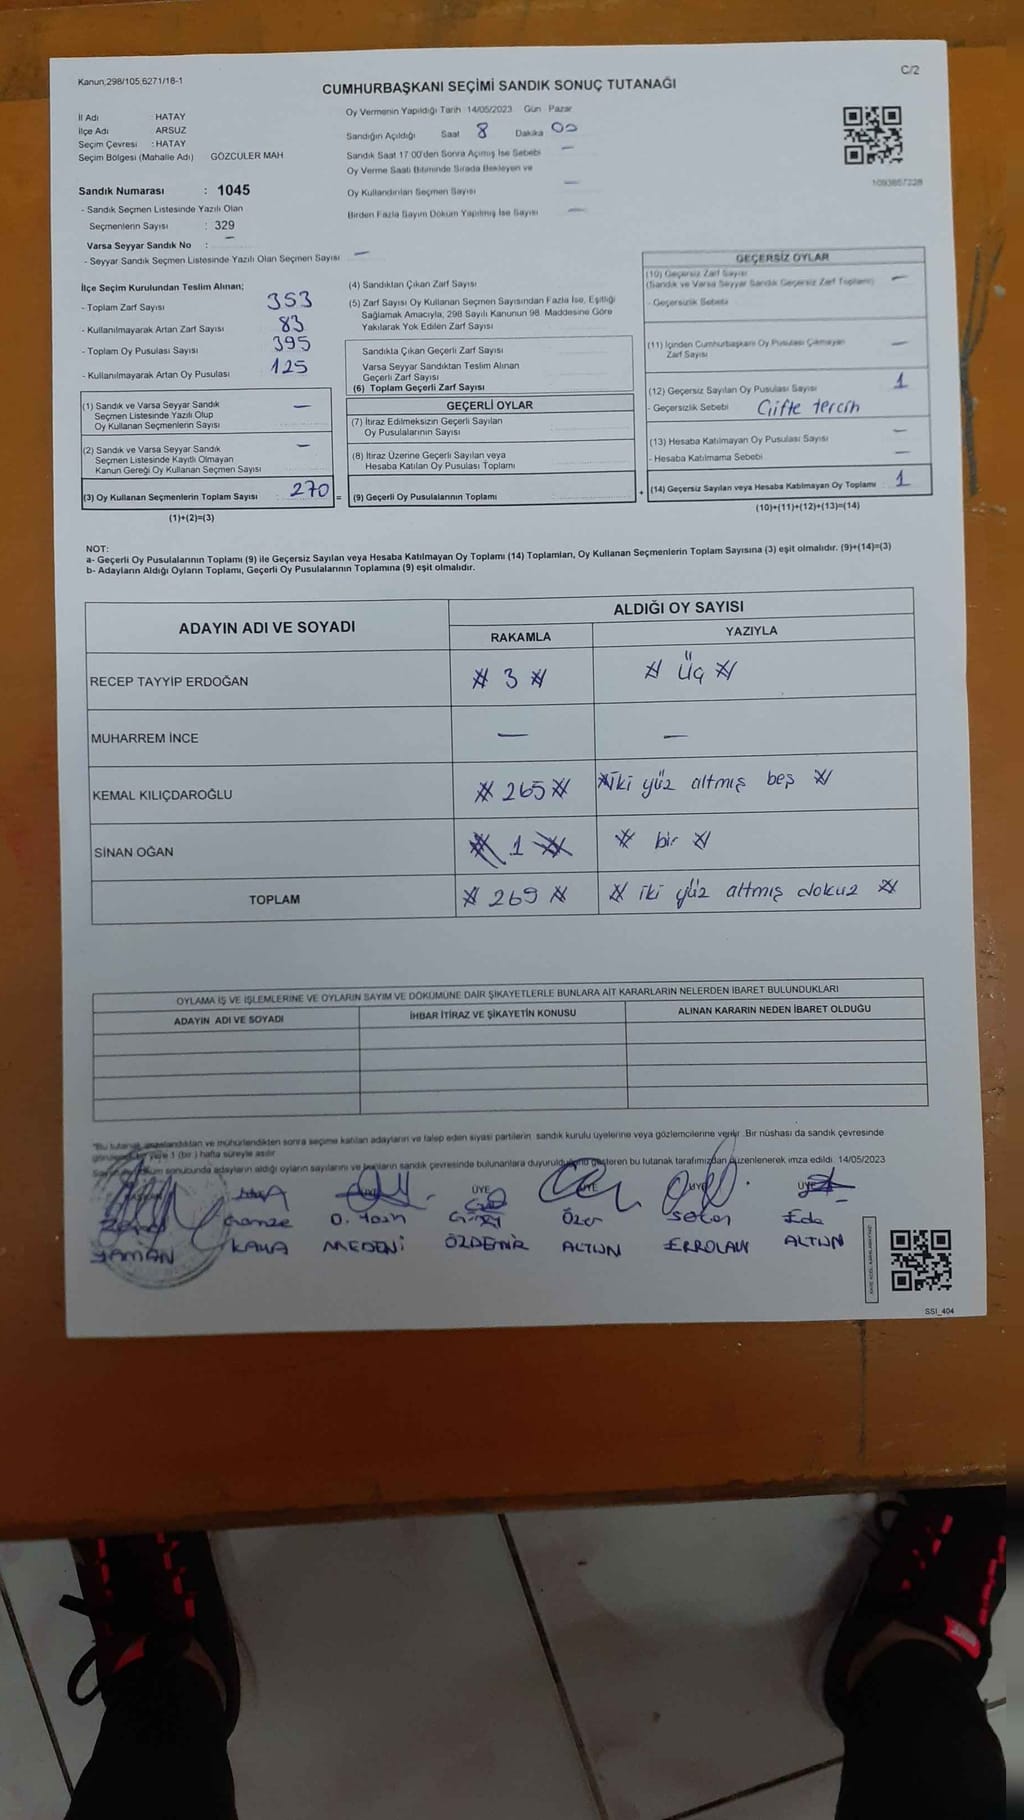 Kanun,298/105,6271/18-1
C/2
CUMHURBAŞKANI SEÇİMİ SANDIK SONUÇ TUTANAĞI
İl Adı HATAY
İlçe Adı ARSUZ
Seçim Çevresi : HATAY
Seçim Bölgesi (Mahalle Adı) GÖZCÜLER MAH
Sandık Numarası : 1045
- Sandık Seçmen Listesinde Yazılı Olan
Seçmenlerin Sayısı : 329
Varsa Seyyar Sandık No : —
- Seyyar Sandık Seçmen Listesinde Yazılı Olan Seçmen Sayısı —
Oy Vermenin Yapıldığı Tarih 14/05/2023 Gün Pazar
Sandığın Açıldığı Saat 8 Dakika 00
Sandık Saat 17:00'den Sonra Açımış İse Sebebi —
Oy Verme Saati Bitiminde Sırada Bekleyen ve
Oy Kullandırılan Seçmen Sayısı —
Birden Fazla Sayım Döküm Yapılmış İse Sayısı —
1093857228
İlçe Seçim Kurulundan Teslim Alınan;
- Toplam Zarf Sayısı 353
- Kullanılmayarak Artan Zarf Sayısı 83
- Toplam Oy Pusulası Sayısı 395
- Kullanılmayarak Artan Oy Pusulası 125
(1) Sandık ve Varsa Seyyar Sandık
Seçmen Listesinde Yazılı Olup
Oy Kullanan Seçmenlerin Sayısı —
(2) Sandık ve Varsa Seyyar Sandık
Seçmen Listesinde Kayıtlı Olmayan
Kanun Gereği Oy Kullanan Seçmen Sayısı —
(3) Oy Kullanan Seçmenlerin Toplam Sayısı 270 =
(1)+(2)=(3)
(4) Sandıktan Çıkan Zarf Sayısı
(5) Zarf Sayısı Oy Kullanan Seçmen Sayısından Fazla İse, Eşitliği
Sağlamak Amacıyla, 298 Sayılı Kanunun 98. Maddesine Göre
Yakılarak Yok Edilen Zarf Sayısı
Sandıkta Çıkan Geçerli Zarf Sayısı
Varsa Seyyar Sandıktan Teslim Alınan
Geçerli Zarf Sayısı
(6) Toplam Geçerli Zarf Sayısı
GEÇERLİ OYLAR
(7) İtiraz Edilmeksizin Geçerli Sayılan
Oy Pusulalarının Sayısı
(8) İtiraz Üzerine Geçerli Sayılan veya
Hesaba Katılan Oy Pusulası Toplamı
(9) Geçerli Oy Pusulalarının Toplamı +
GEÇERSİZ OYLAR
(10) Geçersiz Zarf Sayısı
(Sandık ve Varsa Seyyar Sandık Geçersiz Zarf Toplamı) —
- Geçersizlik Sebebi
(11) İçinden Cumhurbaşkanı Oy Pusulası Çıkmayan
Zarf Sayısı —
(12) Geçersiz Sayılan Oy Pusulası Sayısı 1
- Geçersizlik Sebebi Çifte tercih
(13) Hesaba Katılmayan Oy Pusulası Sayısı —
- Hesaba Katılmama Sebebi —
(14) Geçersiz Sayılan veya Hesaba Katılmayan Oy Toplamı 1
(10)+(11)+(12)+(13)=(14)
NOT:
a- Geçerli Oy Pusulalarının Toplamı (9) ile Geçersiz Sayılan veya Hesaba Katılmayan Oy Toplamı (14) Toplamları, Oy Kullanan Seçmenlerin Toplam Sayısına (3) eşit olmalıdır. (9)+(14)=(3)
b- Adayların Aldığı Oyların Toplamı, Geçerli Oy Pusulalarının Toplamına (9) eşit olmalıdır.
ADAYIN ADI VE SOYADI ALDIĞI OY SAYISI
RAKAMLA YAZIYLA
RECEP TAYYİP ERDOĞAN # 3 # # Üç #
MUHARREM İNCE — —
KEMAL KILIÇDAROĞLU # 265 # # İki yüz altmış beş #
SİNAN OĞAN # 1 # # bir #
TOPLAM # 269 # # iki yüz altmış dokuz #
OYLAMA İŞ VE İŞLEMLERİNE VE OYLARIN SAYIM VE DÖKÜMÜNE DAİR ŞİKAYETLERLE BUNLARA AİT KARARLARIN NELERDEN İBARET BULUNDUKLARI
ADAYIN ADI VE SOYADI İHBAR İTİRAZ VE ŞİKAYETİN KONUSU ALINAN KARARIN NEDEN İBARET OLDUĞU
"Bu tutanak imzalandıktan ve mühürlendikten sonra seçime katılan adayların ve talep eden siyasi partilerin sandık kurulu üyelerine veya gözlemcilerine verilir. Bir nüshası da sandık çevresinde
görülebilir bir yere 1 (bir) hafta süreyle asılır
Sayım döküm sonucunda adayların aldığı oyların sayılarını ve bunların sandık çevresinde bulunanlara duyurulduğunu gösteren bu tutanak tarafımızdan düzenlenerek imza edildi. 14/05/2023
BAŞKAN ÜYE ÜYE ÜYE ÜYE
Gamze O. Yasin Özer Eda
YAMAN KAYA MEDENİ ÖZDEMİR ALTUN ALTUN
SSI_404